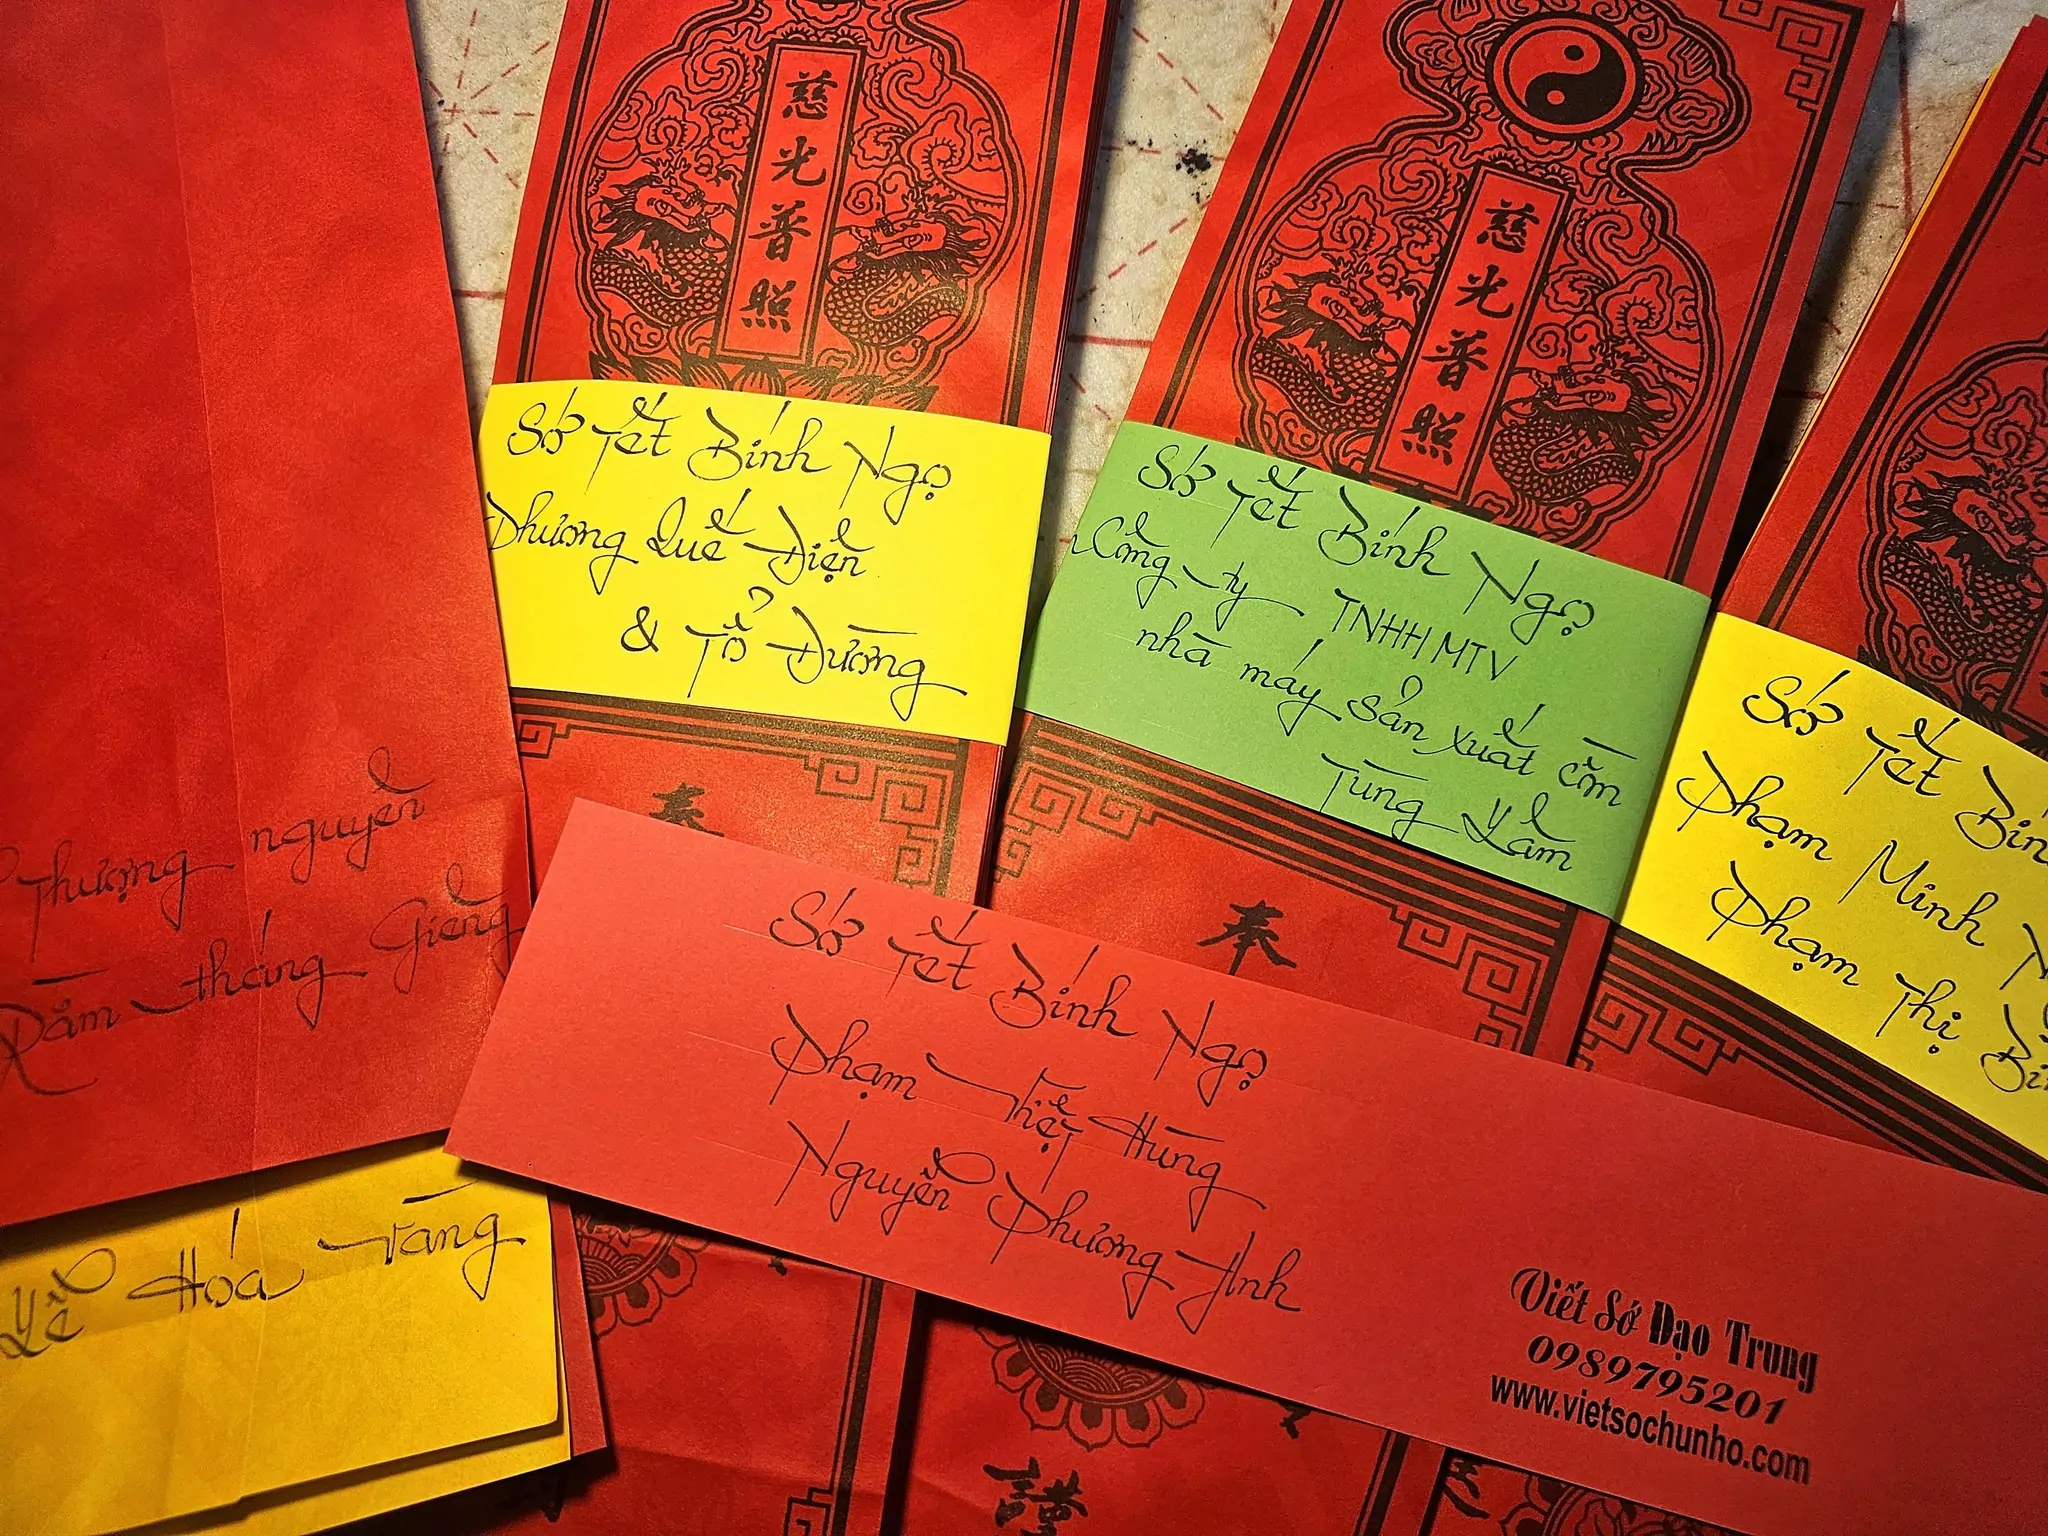 慈光普照
慈光普照
Sớ Tết Bính Ngọ
Phương Quế Điện
& Tổ Đường
Sớ Tết Bính Ngọ
Công ty TNHH MTV
nhà máy sản xuất cồn
Tùng Lâm
Sớ Tết Bín
Phạm Minh
Phạm Thị
奉
奉
Thượng nguyên
Rằm tháng Giêng
Sớ Tết Bính Ngọ
Phạm Thiệt Hùng
Nguyễn Phương Anh
Lễ Hóa vàng
Viết Sớ Đạo Trung
0989795201
www.vietsochunho.com
謹